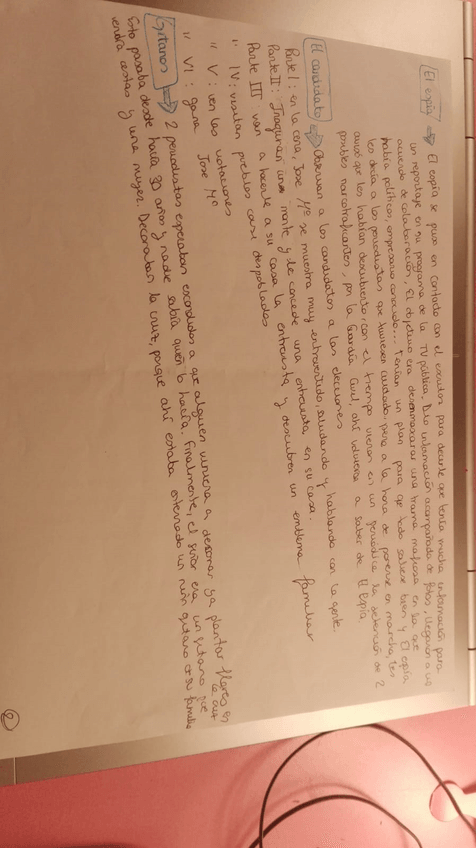 El espía ⇒ El espía se puso en contacto con el escritor para decirle que tenía mucha información para
un reportaje en su programa de la TV pública. Dio información acompañada de fotos, llegaron a un
acuerdo de colaboración. El objetivo era desenmascarar una trama mafiosa en la que
había políticos, empresarios conocidos... Tenían un plan para que todo saliese bien y El espía
les decía a los periodistas que tuviesen cuidado, pero a la hora de ponerse en marcha, les
avisó que les habían descubierto, con el tiempo vieron en un periódico la detención de 2
posibles narcotraficantes, por la Guardia Civil, ahí volvieron a saber de El Espía.
El candidato ⇒ Observan a los candidatos a las elecciones
Parte I: en la cena, Jose Mº se muestra muy extrovertido, saludando y hablando con la gente.
Parte II: Inaguran un monte y le concede una entrevista en su casa.
Parte III: van a hacerle a su casa la entrevista y descubren un emblema familiar
" IV: visitan pueblos casi despoblados
" V: ven las votaciones
" VI: gana Jose Mº
Gitanos ⇒ 2 periodistas esperaban escondidos a que alguien viniera a decorar y a plantar flores en
la cruz
Esto pasaba desde hacía 30 años y nadie sabía quién lo hacía. Finalmente, el señor era un gitano que
vendía cestas y una mujer. Decoraban la cruz, porque ahí estaba enterrado un niño gitano de su familia
②